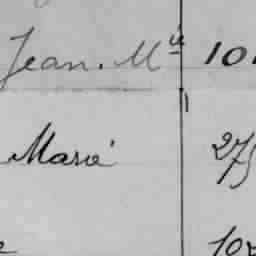 Jean. Mie 10
Marie 275
10